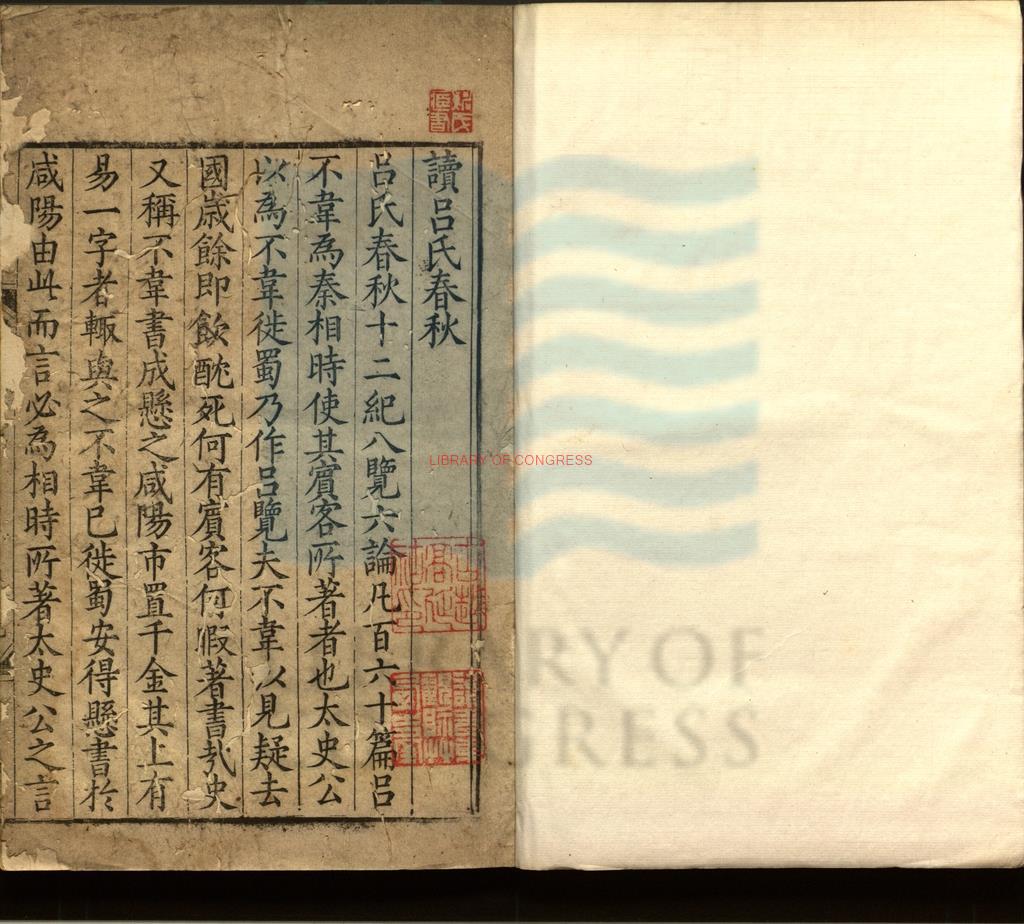 讀吕氏春秋
吕氏春秋十二紀八覽六論凡百六十篇吕
不韋為秦相時使其賓客所著者也太史公
以為不韋徙蜀乃作吕覽夫不韋以見疑去
國歲餘即飲酖死何有賓客何暇著書哉史
又稱不韋書成懸之咸陽市置千金其上有
易一字者輙與之不韋已徙蜀安得懸書於
咸陽由此而言必為相時所著太史公之言
LIBRARY OF CONGRESS
RY OF
GRESS